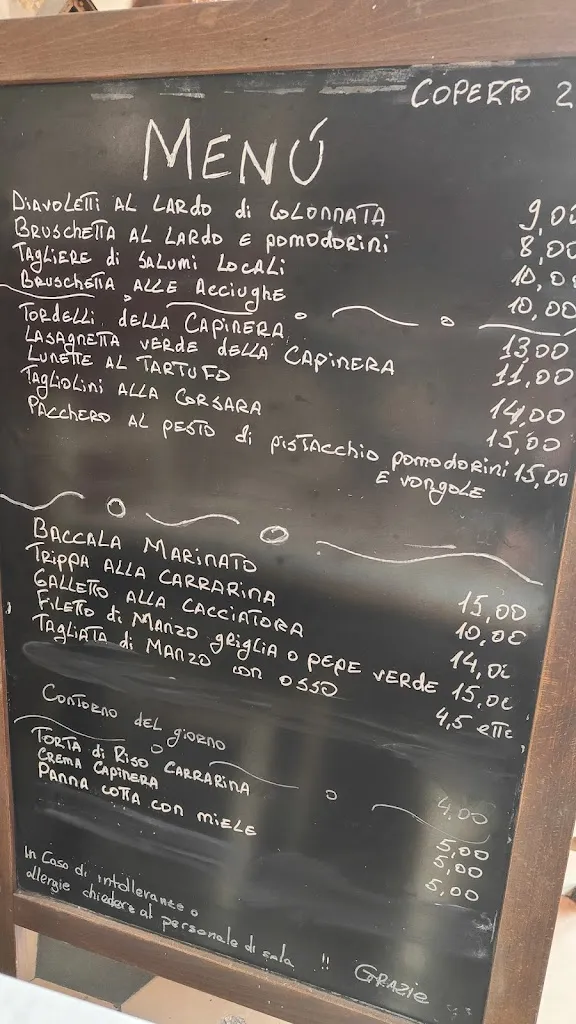 COPERTO 2
MENÚ
DIAVOLETTI AL LARDO di COLONNATA 9,00
BRUSCHETTA AL LARDO E POMODORINI 8,00
TAGLIERE di SALUMI LOCALI 10,00
BRUSCHETTA ALLE ACCIUGHE 10,00
TORDELLI DELLA CAPINERA 13,00
LASAGNETTA VERDE DELLA CAPINERA 11,00
LUNETTE AL TARTUFO 14,00
TAGLIOLINI ALLA CORSARA 15,00
PACCHERO AL PESTO di PISTACCHIO POMODORINI 15,00
E VONGOLE
BACCALA MARINATO 15,00
TRIPPA ALLA CARRARINA 10,00
GALLETTO ALLA CACCIATORA 14,00
FILETTO di MANZO GRIGLIA O PEPE VERDE 15,00
TAGLIATA di MANZO CON OSSO 4,5 ETTO
CONTORNO DEL GIORNO 4,00
TORTA di RISO CARRARINA 5,00
CREMA CAPINERA 5,00
PANNA COTTA CON MIELE 5,00
In Caso di intolleranze o
allergie chiedere al personale di sala !! GRAZIE